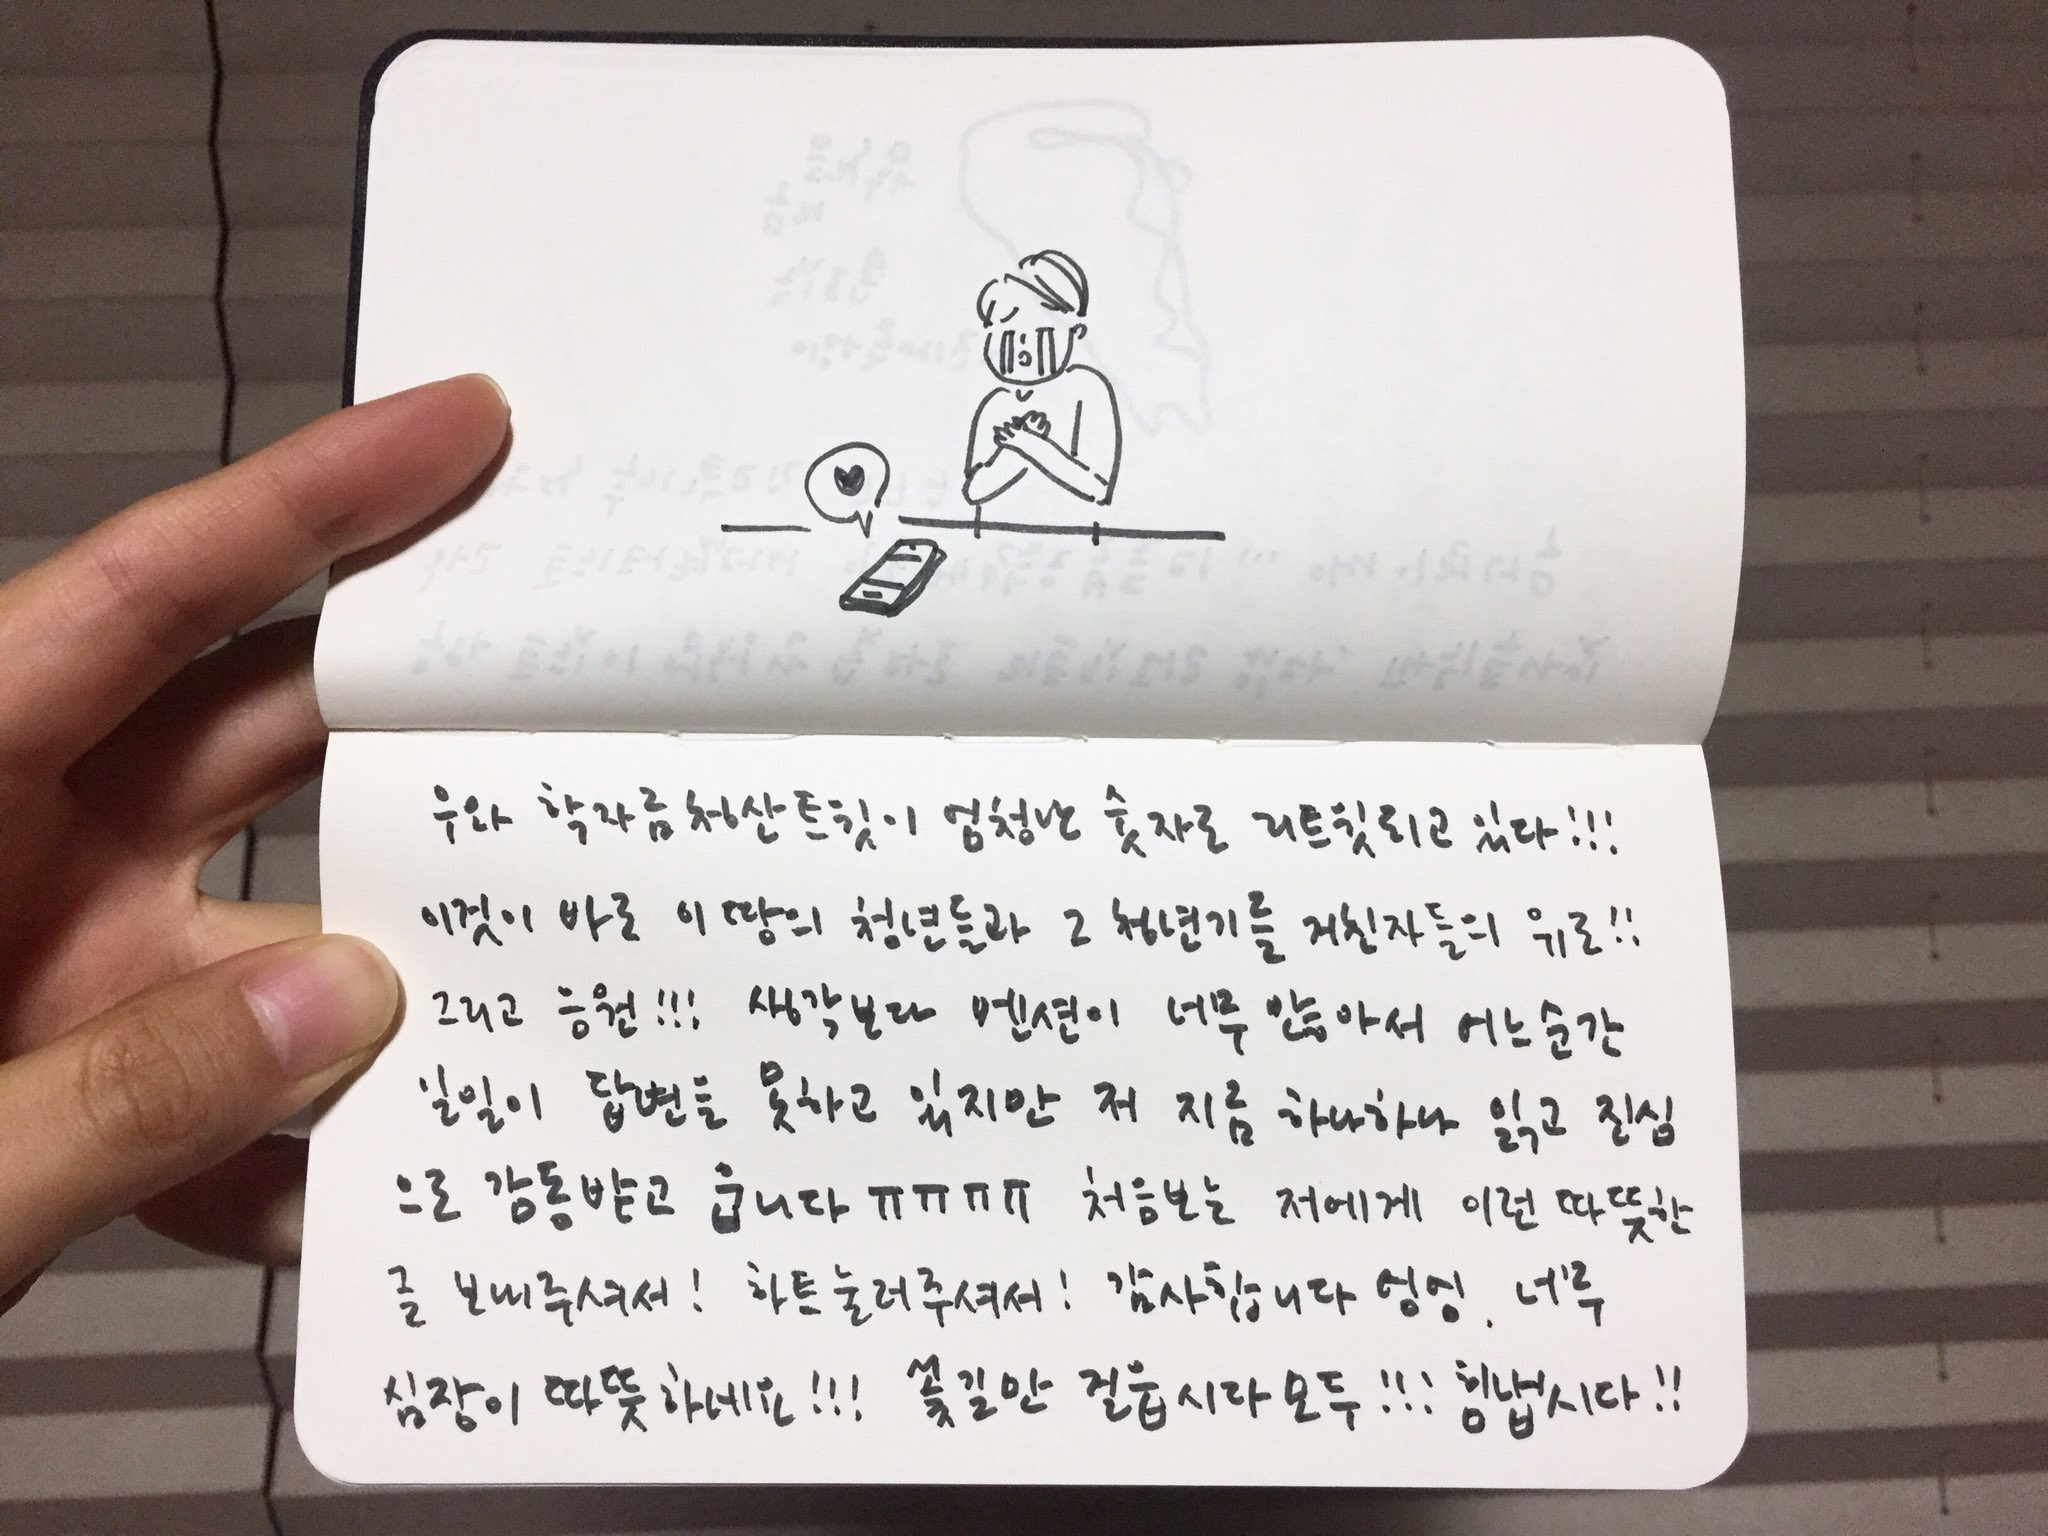 우와 학자금청산트윗이 엄청난 숫자로 리트윗되고 있다!!!
이것이 바로 이 땅의 청년들과 그 청년기를 거친자들의 위로!!
그리고 응원!!! 생각보다 멘션이 너무 많아서 어느순간
일일이 답변을 못하고 있지만 저 지금 하나하나 읽고 진심
으로 감동받고 웁니다 ㅠㅠㅠㅠ 처음보는 저에게 이런 따뜻한
글 보내주셔서! 하트눌러주셔서! 감사합니다 엉엉. 너무
심장이 따뜻하네요!!! 꽃길만 걸읍시다 모두!!! 힘냅시다!!